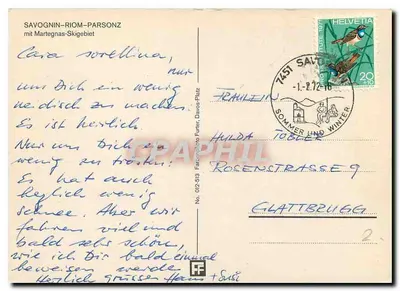 SAVOGNIN-RIOM-PARSONZ
mit Martegnas-Skigebiet
Cara sorellina,
nur
um Dich ein wenig
neidisch zu machen.
Es ist herrlich.
Nur um Dich ein
wenig zu trösten:
Es hat auch
herzlich wenig
Schnee. Aber wir
fahren viel und
bald sehr schön,
wie ich Dir bald einmal
beweisen werde
Herzlich grüssen Hans + Susi
No. 012 513 Farbphoto Furter, Davos-Platz
HELVETIA
20
+10
7451 SAVOGNIN
-1.-2.72-18
SOMMER UND WINTER
FRÄULEIN
HULDA TOBLER
ROSENSTRASSE 9
GLATTBRUGG
2.
CPAPHIL